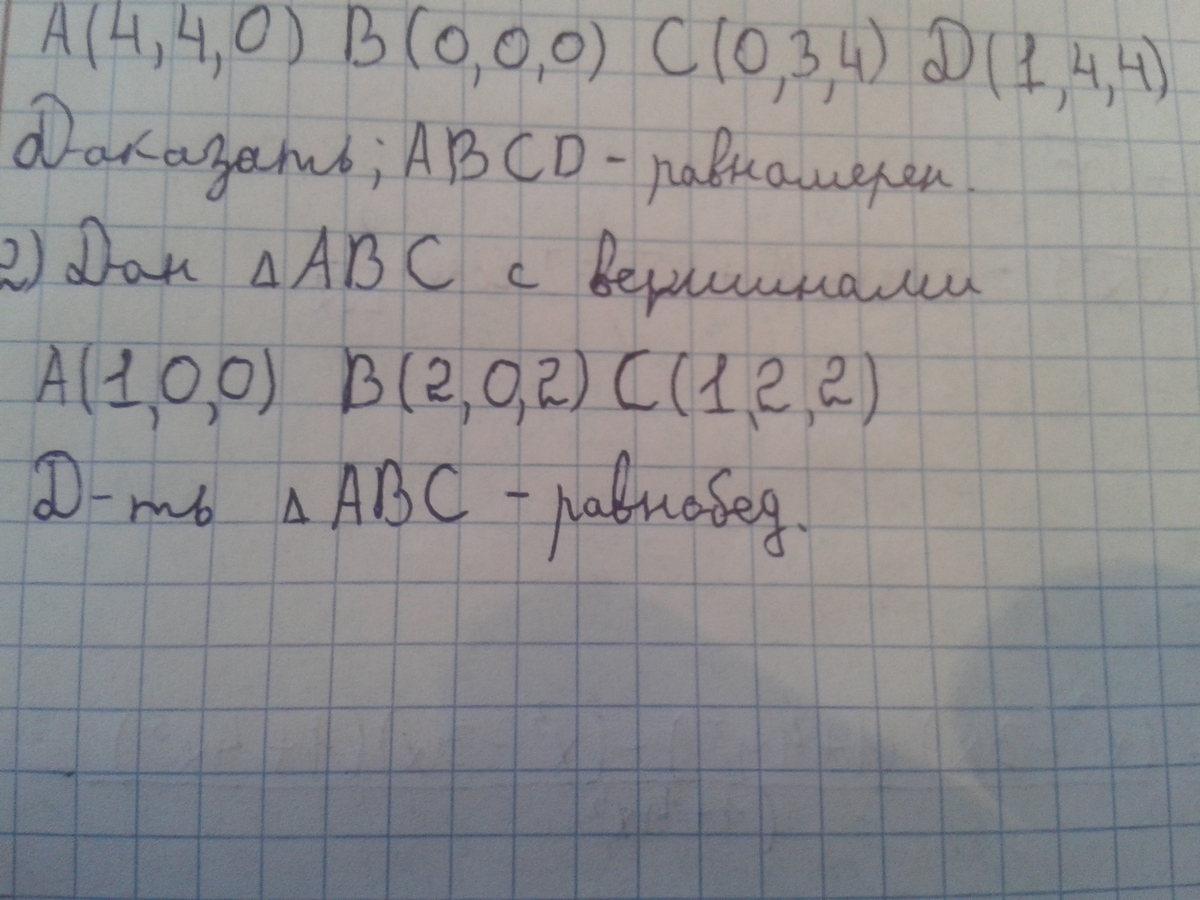 A(4,4,0) B(0,0,0) C(0,3,4) D(1,4,4)
Даказать; ABCD - равномерен.
2) Дан △ABC с вершинами
A(1,0,0) B(2,0,2) C(1,2,2)
Д-ть △ABC - равнобед.